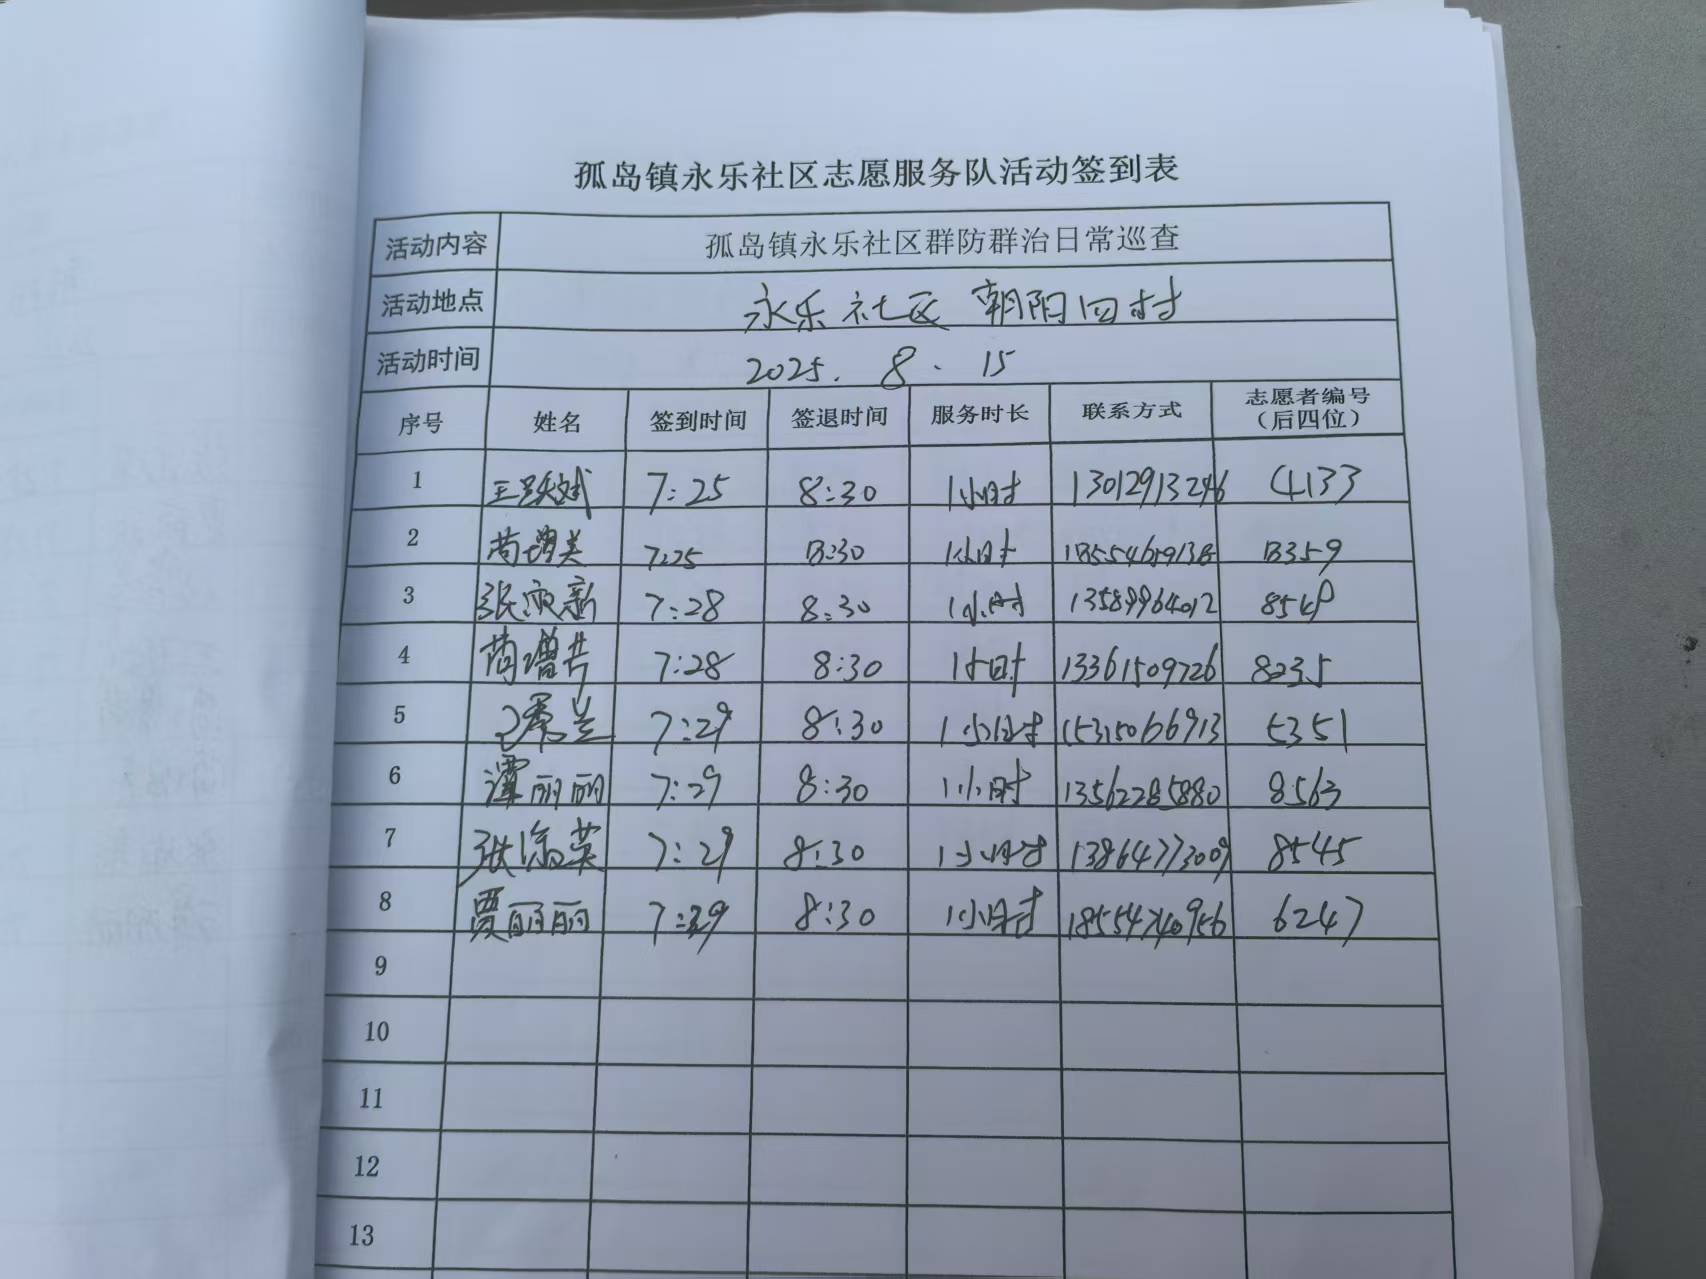 孤岛镇永乐社区志愿服务队活动签到表
活动内容 孤岛镇永乐社区群防群治日常巡查
活动地点 永乐社区 朝阳四村
活动时间 2025. 8. 15
序号 姓名 签到时间 签退时间 服务时长 联系方式 志愿者编号（后四位）
1 7:25 8:30 1小时 13012913246 4133
2 苘增美 7:25 8:30 1小时 8359
3 7:28 8:30 1小时 13589964012
4 苘增共 7:28 8:30 1小时 13361509726 8235
5 7:29 8:30 1小时 15315066913 5351
6 潭丽丽 7:29 8:30 1小时 13562285880 8563
7 7:29 8:30 1小时 13864773009 8545
8 贾丽丽 7:29 8:30 1小时 18554740956 6247
9
10
11
12
13